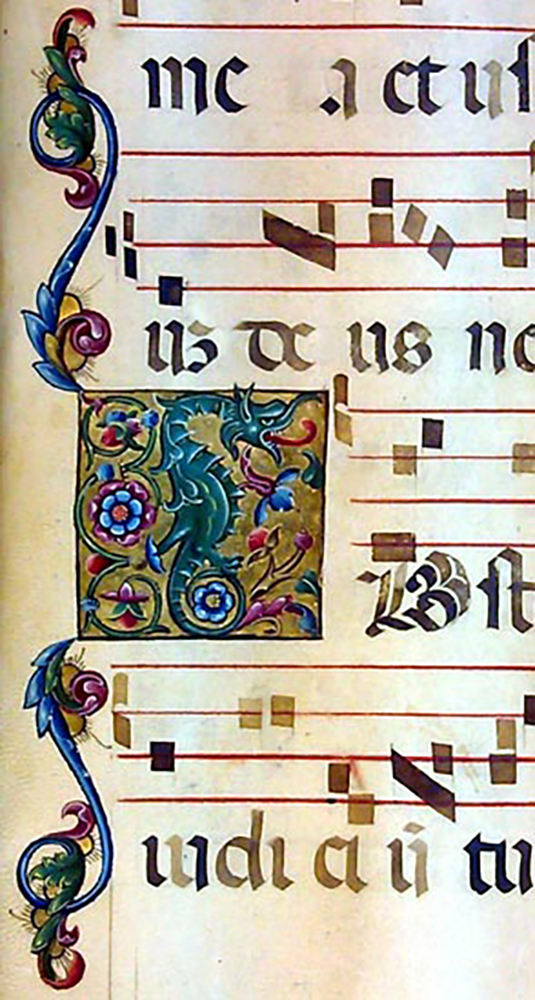 me actuſ
us de us ne
Bſt
iudi ci ū tu